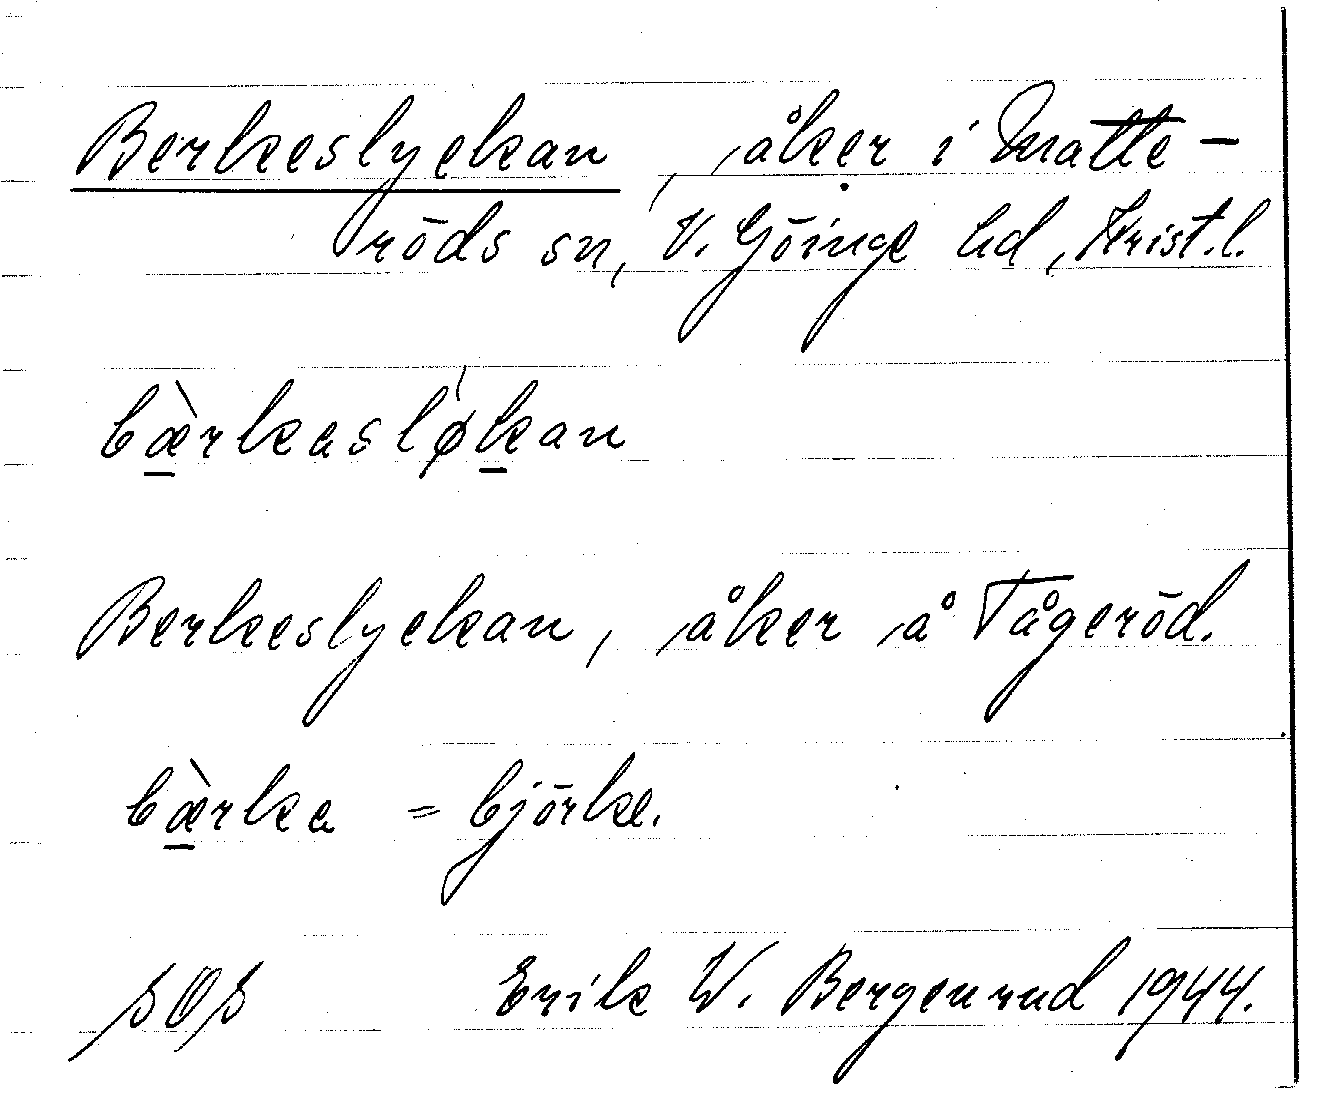 Berkeslyckan, åker i Matte-
röds sn, V. Göinge hd, Krist.l.
bæ̀rkasløkan
Berkeslyckan, åker å Tågeröd.
bæ̀rka = björke.
Erik W. Bergenrud 1944.